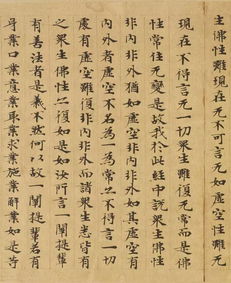 生佛性雖現无不可言无如虛空性雖无
現在不得言无一切衆生雖復无常而是佛
性常住无變是故我於此經中說衆生佛性
非內非外猶如虛空非內非外如其虛空有
內外者虛空不名為一為常亦不得言一切
處有虛空雖復非內非外而諸衆生悉皆有
之衆生佛性亦復如是如汝所言一闡提輩
有善法者是義不然何以故一闡提輩若有
身業口業意業取業求業施業解業如是等